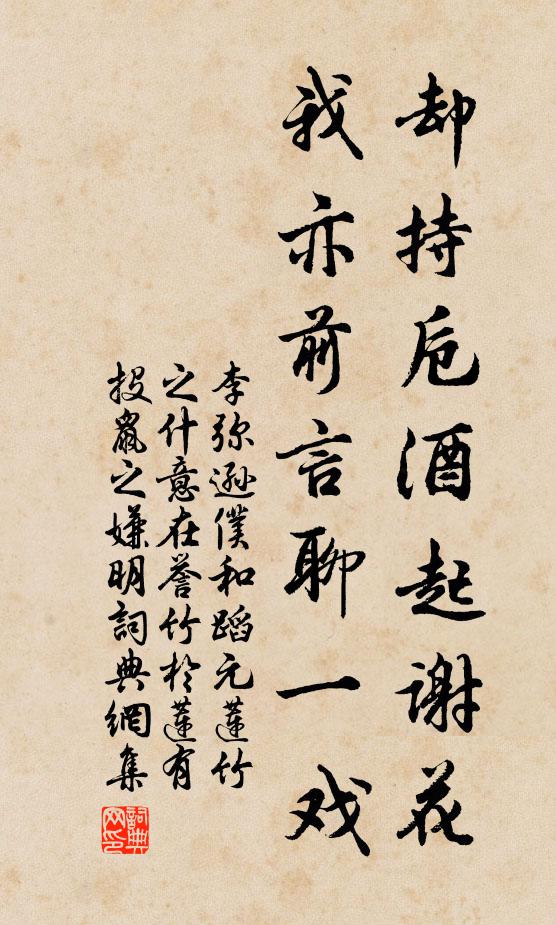 却持卮酒起谢花
我亦前言聊一戏
李弥逊僕和蹈元蓮竹
之什意在誉竹於蓮有
投鼠之嫌明詞典網集
詞典网印